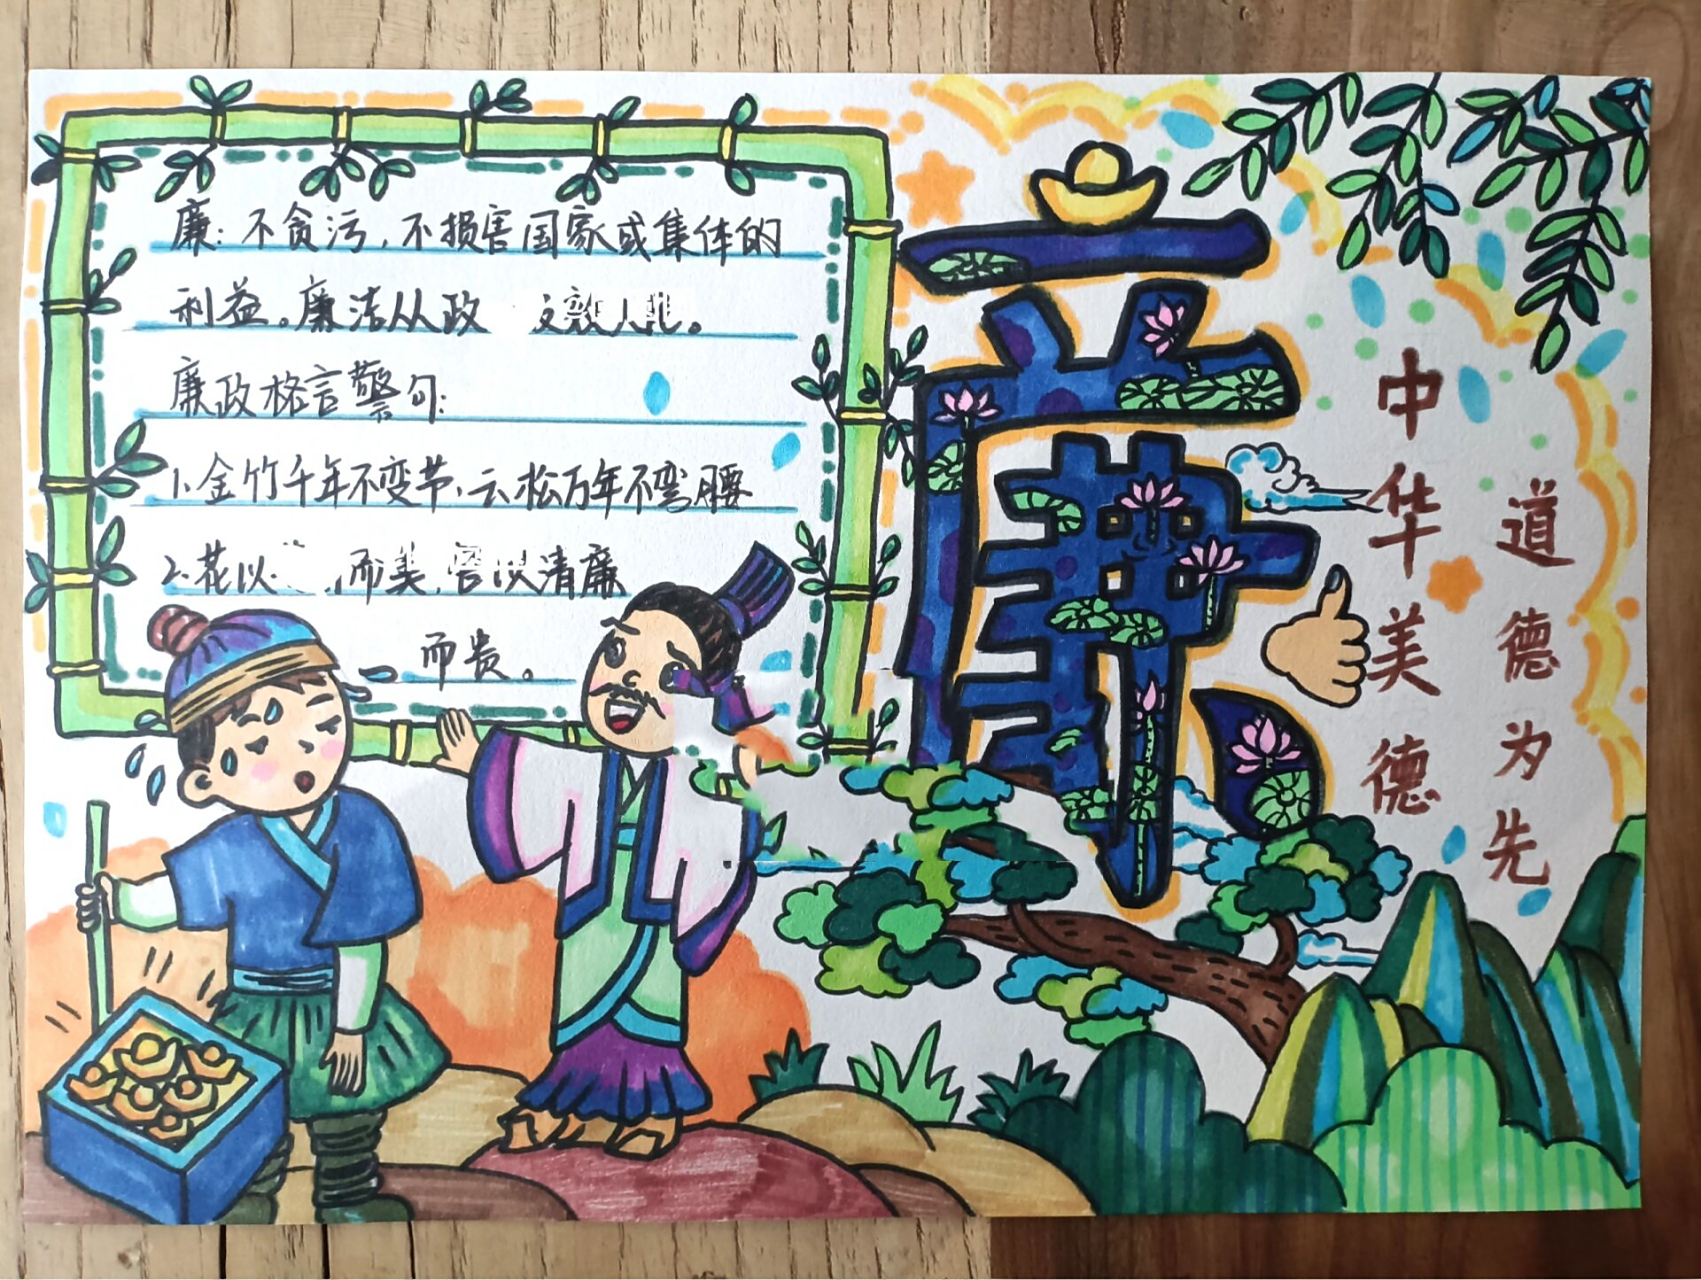 廉：不贪污，不损害国家或集体的
利益。廉洁从政
廉政格言警句：
1、金竹千年不变节、云松万年不弯腰
2、花以 而美，以清廉
而贵。
廉
中华美德
道德为先